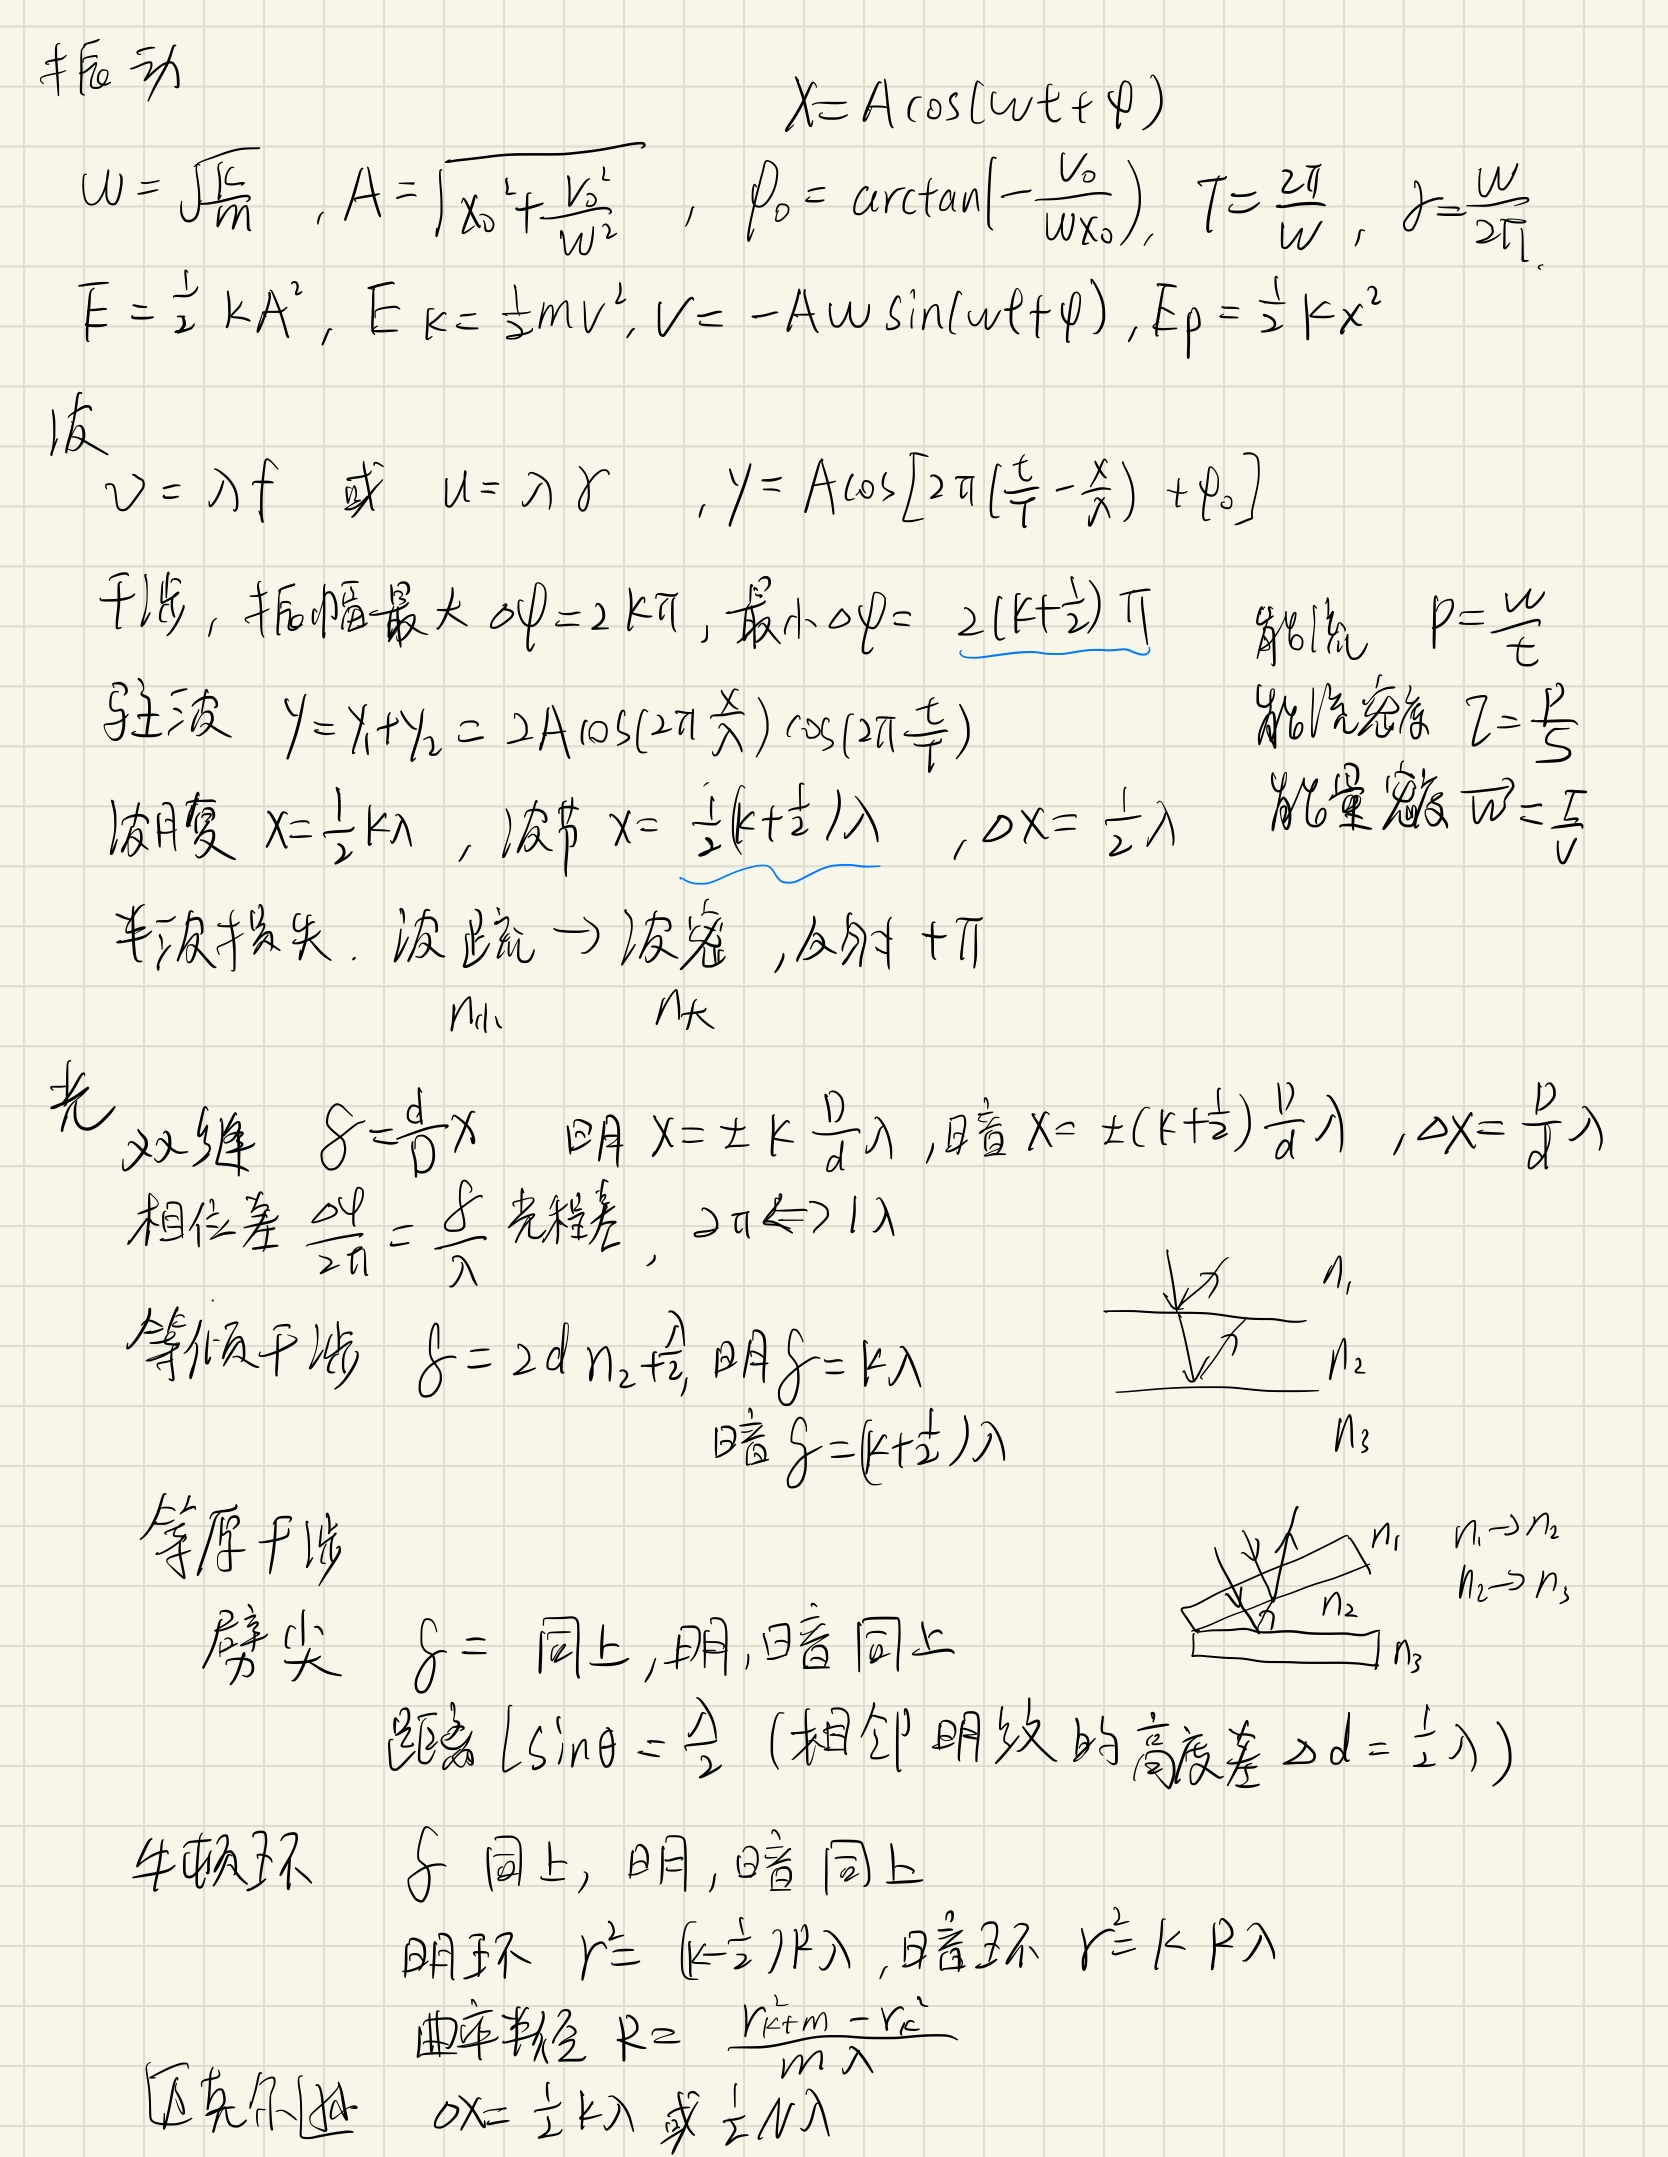 振动
X=Acos(ωt+φ)
ω=√(k/m) , A=√(x₀²+v₀²/ω²) , φ₀=arctan(-v₀/ωx₀), T=2π/ω , γ=ω/2π.
E=½kA², Eₖ=½mv², v=-Aωsin(ωt+φ), Eₚ=½kx²
波
v=λf 或 u=λγ , y=Acos[2π(t/T-x/λ)+φ₀]
干涉, 振幅最大 Δφ=2kπ, 最小Δφ= 2(k+½)π
能流 P=w/t
驻波 y=y₁+y₂=2Acos(2π x/λ)cos(2π t/T)
能流密度 I=P/S
波腹 x=½kλ , 波节 x=½(k+½)λ , Δx=½λ
能量密度
半波损失. 波疏→波密 , 反射+π
n小 n大
光
双缝 δ=d/D x 明 x=±k D/d λ , 暗 x=±(k+½) D/d λ , Δx=D/d λ
相位差 Δφ/2π=δ/λ 光程差, 2π⇔1λ
等倾干涉 δ=2dn₂+λ/2, 明δ=kλ
暗δ=(k+½)λ
n₁
n₂
n₃
等厚干涉
n₁ n₁→n₂
n₂ n₂→n₃
n₃
劈尖 δ= 同上, 明, 暗同上
距离 Lsinθ=λ/2 (相邻明纹的高度差 Δd=½λ)
牛顿环 δ 同上, 明, 暗同上
明环 r²=(k-½)Rλ , 暗环 r²=kRλ
曲率半径 R=(r²ₖ₊ₘ-rₖ²)/mλ
迈克尔逊 Δx=½kλ 或 ½Nλ